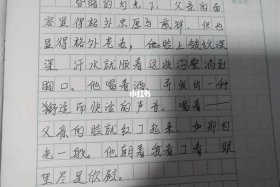 昏暗的灯光下，父亲的面
容显得格外忠厚与慈祥，但也
显得格外老去，他脸上皱纹深
深，汗水就顺着这些沟壑流到
胸口。他喝着酒，发出一种
而快活的声音。喝着——
父亲的脸就红了起来，如那灯
光一般。他朝着我看了看，眼
里尽是欣慰。
小红书